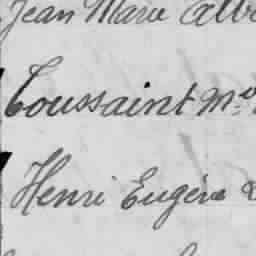 Jean Marie Albe
Toussaint M
Henri Eugène